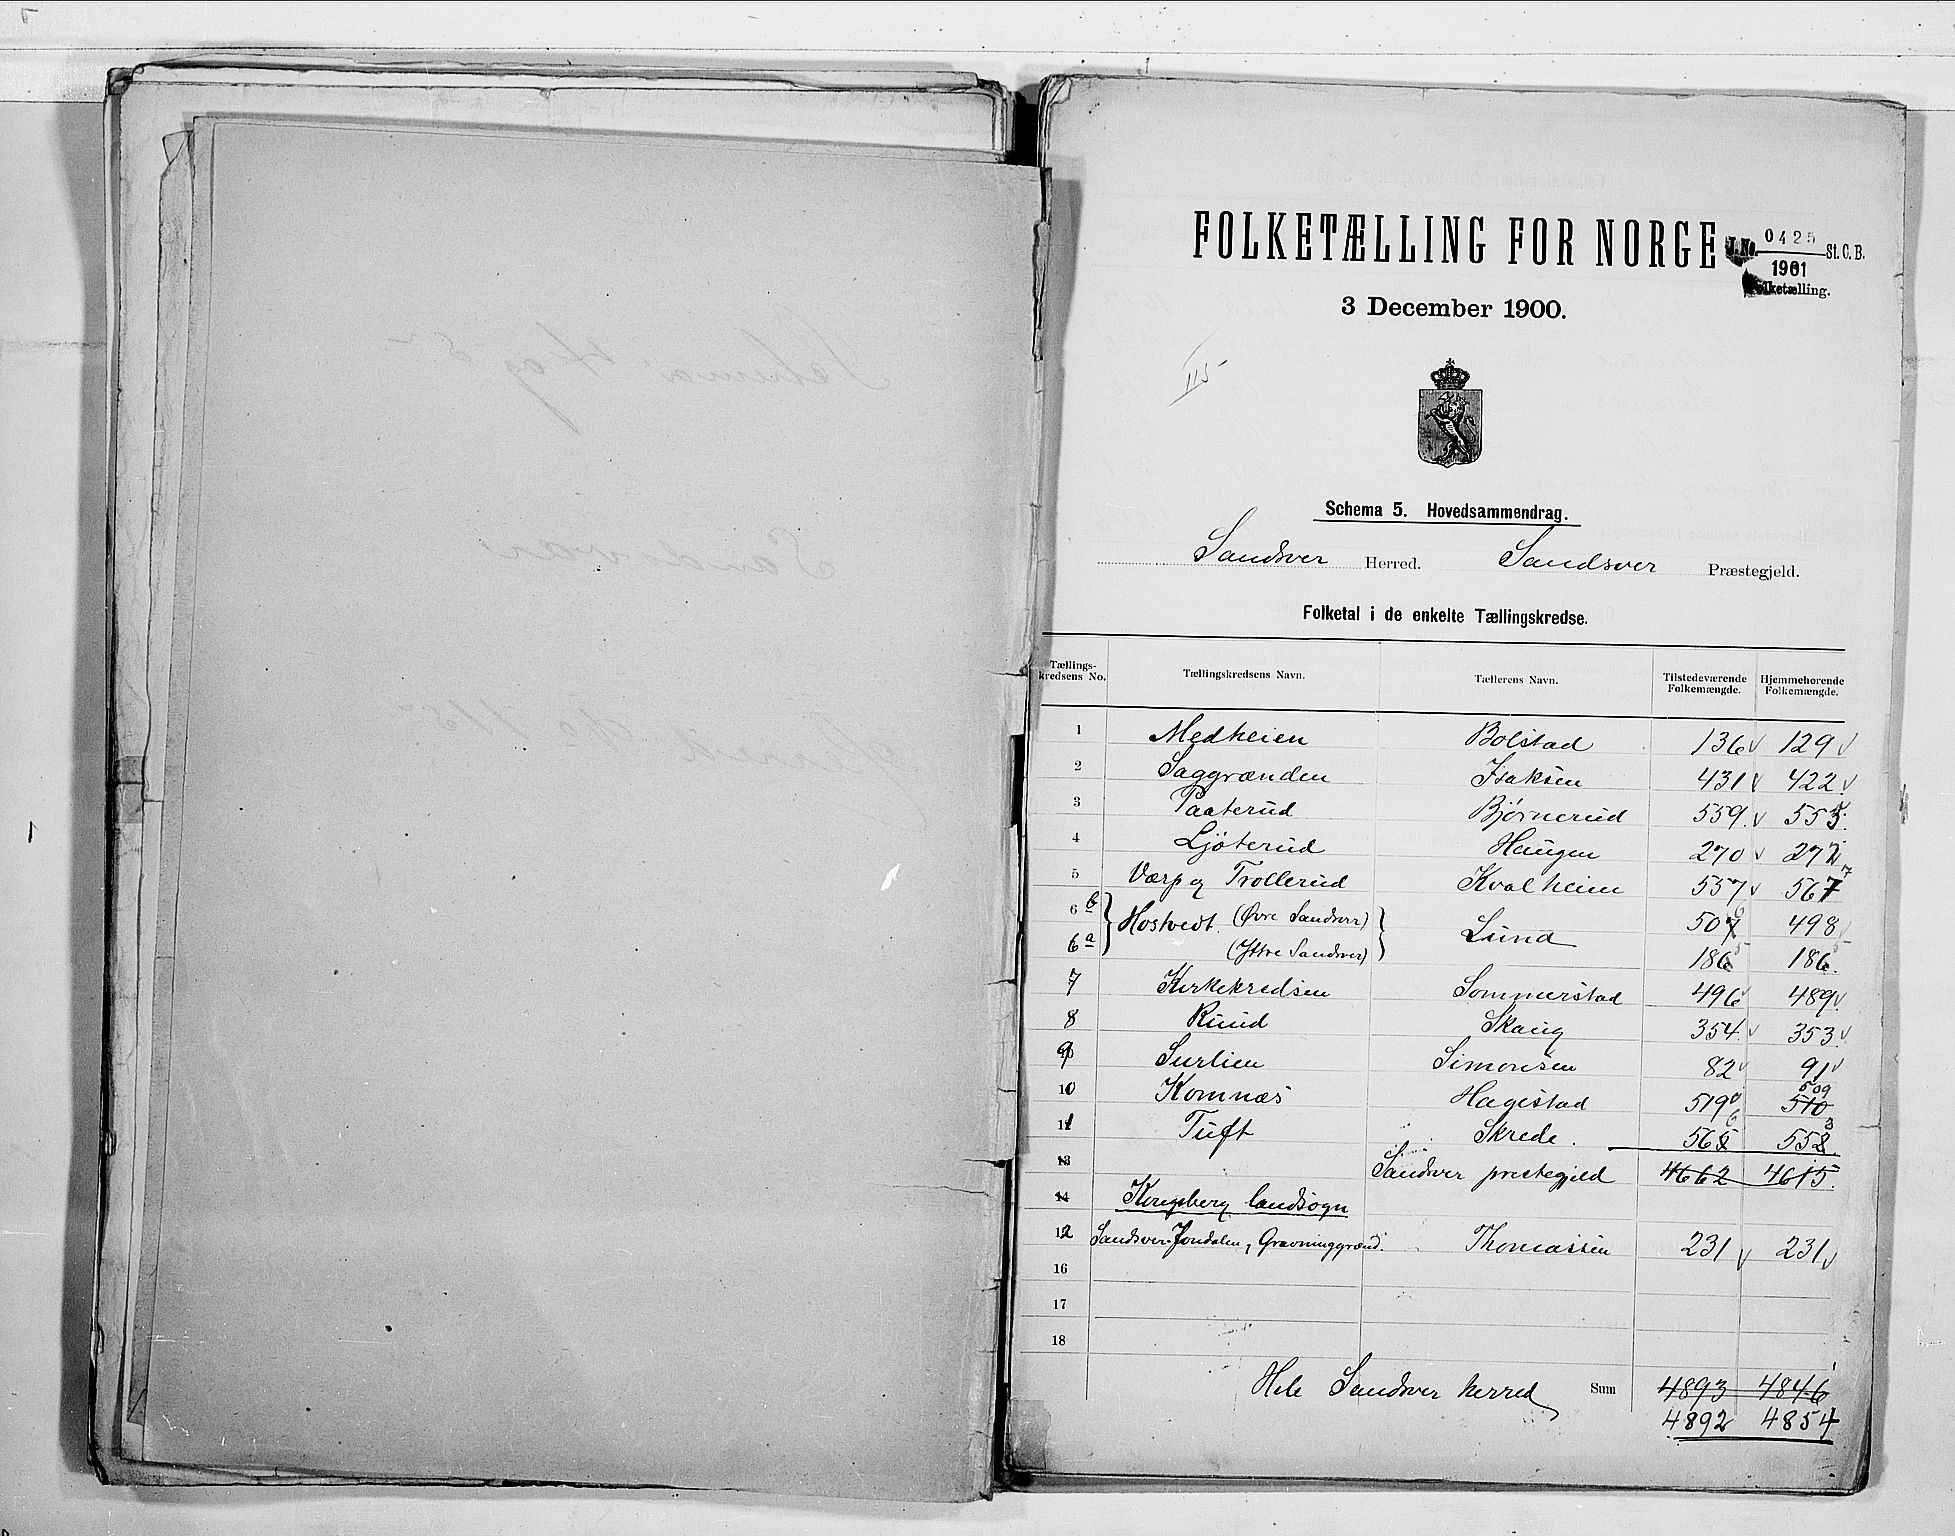 FOLKETÆLLING FOR NORGE
J.No. 0425 St. C. B.
1901
Folketælling.
3 December 1900.
115
Schema 5. Hovedsammendrag.
Sandsver Herred. Sandsver Præstegjeld.
Folketal i de enkelte Tællingskredse.
Tællings-kredsens No. Tællingskredsens Navn. Tællerens Navn. Tilstedeværende Folkemængde. Hjemmehørende Folkemængde.
1 Medheien Bolstad 136 129
2 Saggrænden Isaksen 431 422
3 Paaterud Bjørnerud 559 553
4 Ljøterud Haugen 270 272
5 Værp og Trollerud Kvalheim 557 567
6 b Hostvedt (Øvre Sandsver) Lund 507 498
6 a (Ytre Sandsver) 186 186
7 Kirkekredsen Sommerstad 496 489
8 Ruud Skaug 354 353
9 Surlien Simonsen 82 91
10 Komnæs Hagestad 519 510 509
11 Tuft Skrede. 565 552
13 Sandsver prestegjeld 4662 4615
14 Kongsberg landsogn
12 Sandsver-Jondalen, Gravninggrænd. Thomassen 231 231
16
17
18
Hele Sandsver herred Sum 4893 4846
4892 4854